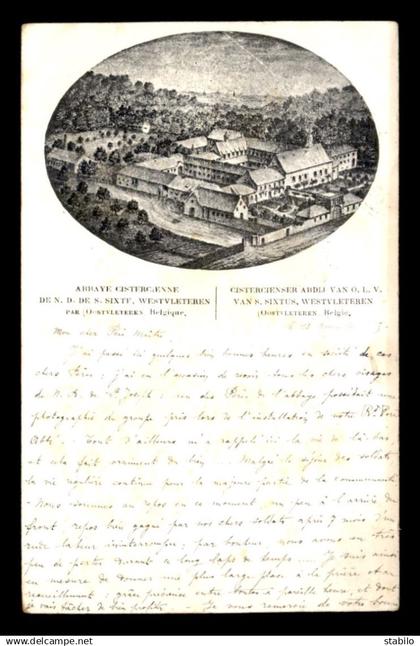 ABBAYE CISTERCIENNE
DE N. D. DE S. SIXTE, WESTVLETEREN
PAR (OOSTVLETEREN Belgique,
CISTERCIENSER ABDIJ VAN O. L. V.
VAN S. SIXTUS, WESTVLETEREN
(OOSTVLETEREN, Belgie,
Mon cher Père Maître,
J'ai passé ici quelques bien bonnes heures en société de ces
chers Pères ; j'ai eu l'occasion de revoir tous les chers visages
de N. D. de St Joseph : un des Pères de l'abbaye possédait une
photographie du groupe prise lors de l'installation de notre Rd Père
Abbé. Tout d'ailleurs m'a rappelé ici la vie de là-bas,
et cela fait vraiment du bien ... Malgré le séjour des soldats
la vie régulière continue pour la majeure partie de la communauté
- Nous sommes au repos en ce moment, un peu à l'arrière du
front, repos bien gagné par nos chers soldats après 7 mois d'un
rude labeur ininterrompu ; par bonheur nous avons eu très
peu de pertes durant ce long laps de temps .... Je suis ainsi
en mesure de donner une plus large place à la prière et au
recueillement : grâce précieuse entre toutes à pareille heure, et dont
je vais tâcher de bien profiter - Je vous remercie de votre bonne